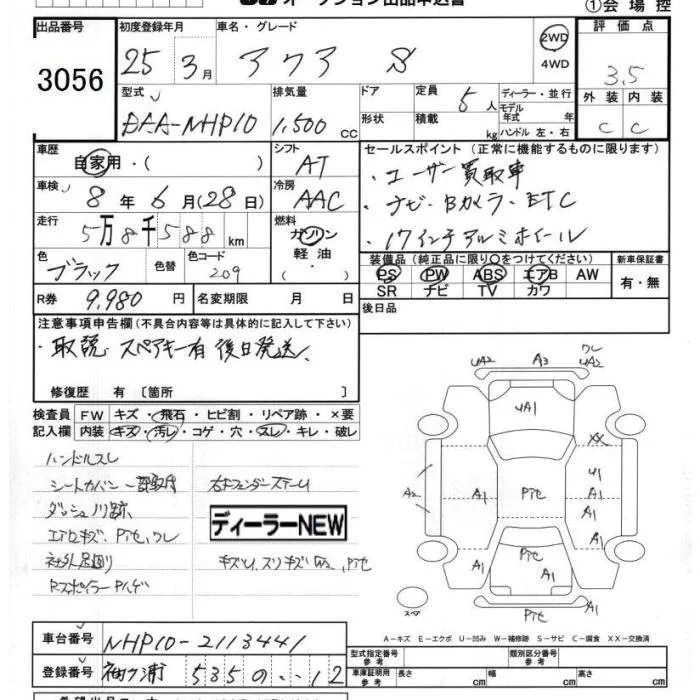 オークション出品申込書
①会場控
出品番号 初度登録年月 車名・グレード 評価点
3056
25 3月 アクア S 2WD
4WD 3.5
型式 排気量 ドア 定員 ディーラー・並行 外装 内装
DAA-NHP10 1,500 CC 5人 モデル
年式 年 C C
形状 積載 kg ハンドル 左・右
車歴 シフト セールスポイント (正常に機能するものに限ります)
自家用・( ) AT ・ユーザー買取車
車検 冷房
8年 6月(28日) AAC ・ナビ・Bカメラ・ETC
走行 燃料
5万8千588km ガソリン ・17インチアルミホイール
色 色替 色コード 軽油
ブラック 209 ・( )
装備品(純正品に限り○をつけてください) 新車保証書
PS PW ABS エアB AW 有・無
SR ナビ TV カワ
R券 9,980円 名変期限 月 日
後日品
注意事項申告欄(不具合内容等は具体的に記入して下さい)
・取説、スペアキー有 後日発送
修復歴 有 〔箇所 〕
検査員 FW キズ・飛石・ヒビ割・リペア跡・×要
記入欄 内装 キズ・汚レ・コゲ・穴・スレ・キレ・破レ
ハンドルスレ
シートカバー一部取付
ダッシュ川跡
エアロキズ、Pτセ,ワレ
社外足廻り
Rスポイラー Pハゲ
ディーラーNEW
UA2 A3 ワレ
UA2
UA1
XX
A2 A1 Pτセ U1
A1
A1
A1 Pτセ A1
A1
Pτセ
スペア
A-キズ E-エクボ U-凹み W-補修跡 S-サビ C-腐食 XX-交換済
車台番号 NHP10-2113441
型式指定番号
参考 類別区分番号
参考
登録番号 袖ヶ浦 535 の ・・12
車庫証明用
参考 長さ cm 幅 cm 高さ cm